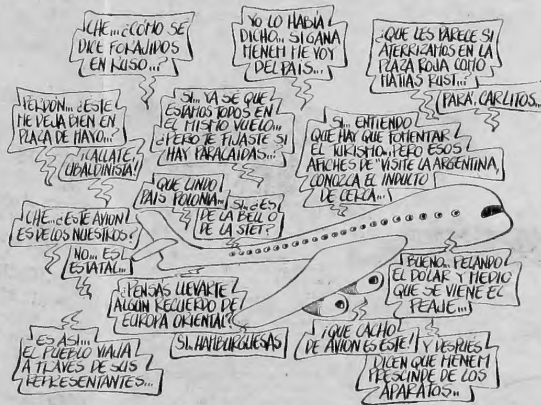 ¡CHE... ¿CÓMO SE
DICE FORAJIDOS
EN RUSO...?
YO LO HABÍA
DICHO... SI GANA
MENEM ME VOY
DEL PAIS...
¿QUE LES PARECE SI
ATERRIZAMOS EN LA
PLAZA ROJA COMO
MATIAS RUST...?
PARÁ, CARLITOS...
PERDON... ¿ESTE
ME DEJA BIEN EN
PLAZA DE MAYO...?
¡CALLATE,
UBALDINISTA!
SI... YA SE QUE
ESTAMOS TODOS EN
EL MISMO VUELO...
¿PERO TE FIJASTE SI
HAY PARACAIDAS...?
SI... ENTIENDO
QUE HAY QUE FOMENTAR
EL TURISMO... PERO ESOS
AFICHES DE "VISITE LA ARGENTINA,
CONOZCA EL INDULTO
DE CERCA...
¡QUE LINDO
PAIS POLONIA...
SI... ¿ES
DE LA BELL O
DE LA STET?
¡CHE... ¿ESTE AVION
ES DE LOS NUESTROS?
NO... ES
ESTATAL...
¿PENSAS LLEVARTE
ALGUN RECUERDO DE
EUROPA ORIENTAL?
SI... HAMBURGUESAS
BUENO... PELANDO
EL DOLAR Y MEDIO
QUE SE VIENE EL
PEAJE...
¡ES ASI...
EL PUEBLO VIAJA
A TRAVES DE SUS
REPRESENTANTES...
¡QUE CACHO
DE AVION ES ESTE!
Y DESPUES
DICEN QUE MENEM
PRESCINDE DE LOS
APARATOS...